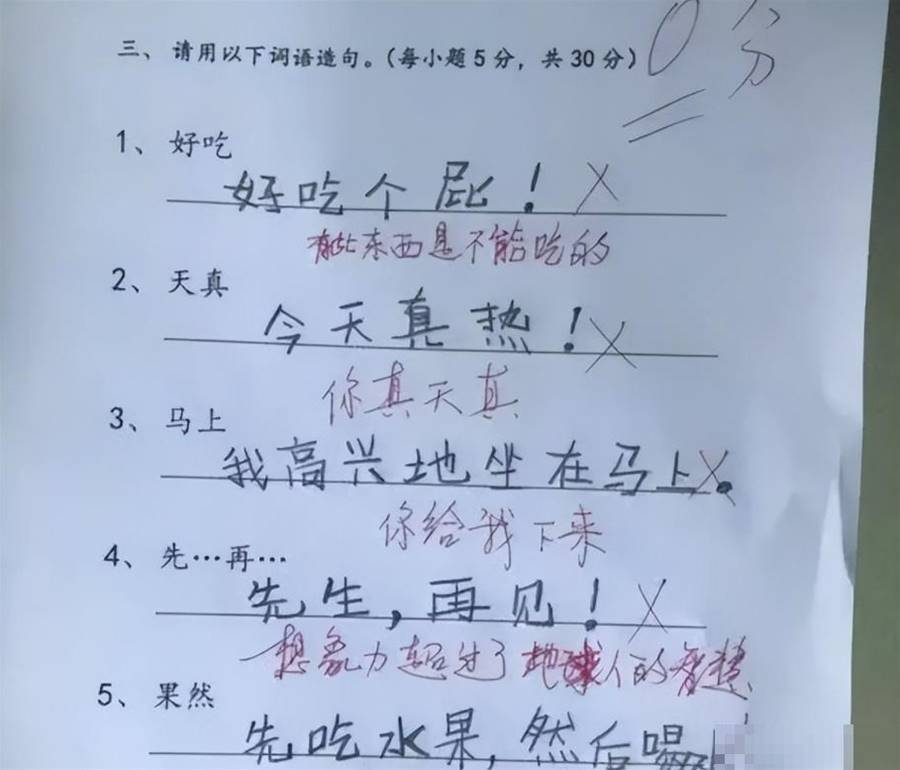 三、请用以下词语造句。(每小题5分,共30分)
0分
1、好吃
好吃个屁!
有些东西是不能吃的
2、天真
今天真热!
你真天真
3、马上
我高兴地坐在马上。
你给我下来
4、先…再…
先生,再见!
想象力超过了地球人的智慧
5、果然
先吃水果,然后喝